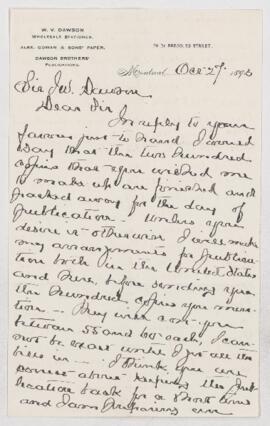 W. V. DAWSON
WHOLESALE STATIONER.
ALEX. COWAN & SONS' PAPER.
DAWSON BROTHERS'
PUBLICATIONS.
Montreal, Oct 27 189
Sir J.W. Dawson
Dear Sir
In reply to your
favour just to hand I would
say that the two hundred
copies that you wished me
to make up are finished and
packed away for the day of
publication. Unless you
desire it otherwise I will make
my arrangements for publica-
tion both in the United States
and here, before sending you
the hundred copies you men-
tion. They will cost you
between 55 and 60 each, I can
not be exact until I get all the
bills in. I think you are
correct about keeping the pub-
lication back for a short time
and I am preparing an